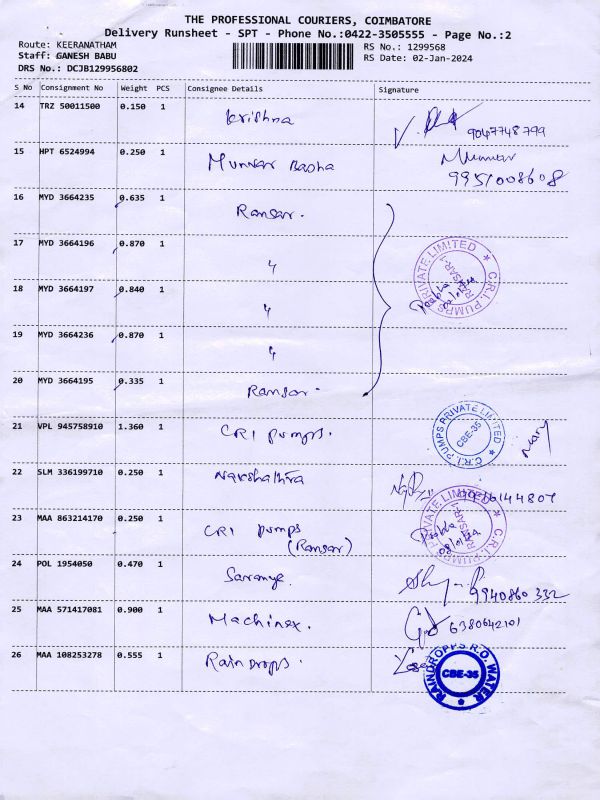 THE PROFESSIONAL COURIERS, COIMBATORE
Delivery Runsheet - SPT - Phone No.:0422-3505555 - Page No.:2
Route: KEERANATHAM
RS No.: 1299568
Staff: GANESH BABU
RS Date: 02-Jan-2024
DRS No.: DCJB129956802
S No Consignment No Weight PCS Consignee Details Signature
14 TRZ 50011500 0.150 1 Krishna 9047748799
15 HPT 6524994 0.250 1 Munnar Basha Munnar
9951008608
16 MYD 3664235 0.635 1 Ransar.
17 MYD 3664196 0.870 1 "
C.R.I. PUMPS PRIVATE LIMITED
RANSAR-1
18 MYD 3664197 0.840 1 "
19 MYD 3664236 0.870 1 "
20 MYD 3664195 0.335 1 Ransar.
21 VPL 945758910 1.360 1 CRI pumps.
C.R.I. PUMPS PRIVATE LIMITED
CBE-35
22 SLM 336199710 0.250 1 Nakshathra
23 MAA 863214170 0.250 1 CRI pumps
(Ransar)
C.R.I. PUMPS PRIVATE LIMITED
RANSAR-1
24 POL 1954050 0.470 1 Saranya. 9940860332
25 MAA 571417081 0.900 1 Machinex. 6380642101
26 MAA 108253278 0.555 1 Rain drops.
RAINDROPPS R.O. WATER
CBE-35